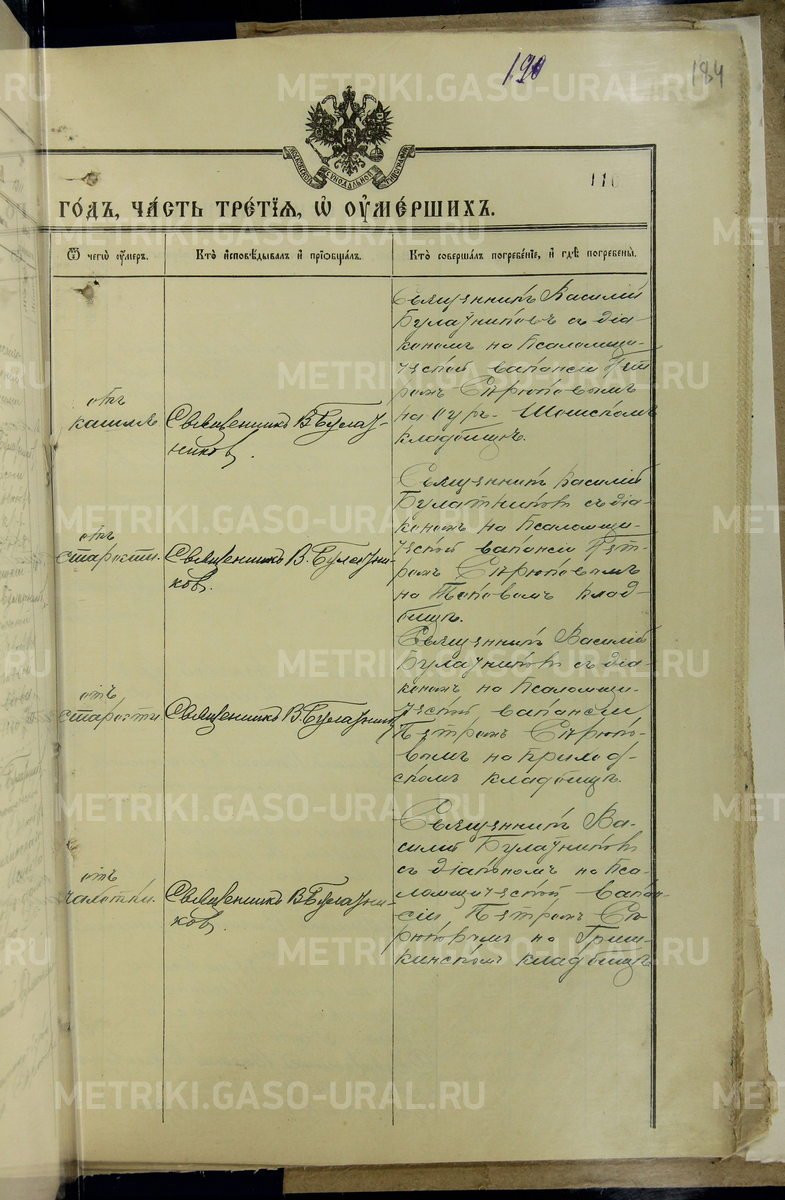 190
184
116
МОСКОВСКОЙ СѴНОДАЛЬНОЙ ТИПОГРАФІИ
ГОДЪ, ЧАСТЬ ТРЕТІЯ, Ѡ ОУМЕРШИХЪ.
Ѿ чегѡ оумеръ.
Кто исповѣдывалъ и пріобщалъ.
Кто совершалъ погребеніе, и гдѣ погребены.
отъ
кашля
Священникъ В. Булат-
ников.
Священникъ Василій
Булатниковъ съ діа-
кономъ на псаломщи-
ческой вакансіи Пет
ромъ Серюковымъ
на
кладбищѣ.
отъ
старости.
Священникъ В. Булатни-
ков.
Священникъ Василій
Булатниковъ съ діа-
кономъ на псаломщи-
ческой вакансіи Пет-
ромъ Серюковымъ
на клад-
бищѣ.
отъ
старости
Священникъ В. Булатников
Священникъ Василій
Булатниковъ съ діа-
кономъ на псаломщи-
ческой вакансіи
Петромъ Серюко-
вымъ на
скомъ кладбищѣ.
отъ
чахотки.
Священникъ В. Булатни-
ков.
Священникъ Ва-
силій Булатниковъ
съ діакономъ на пса-
ломщической вакан-
сіи Петромъ Се-
рюковымъ на Гриш-
кинскомъ кладбищѣ
METRIKI.GASO-URAL.RU